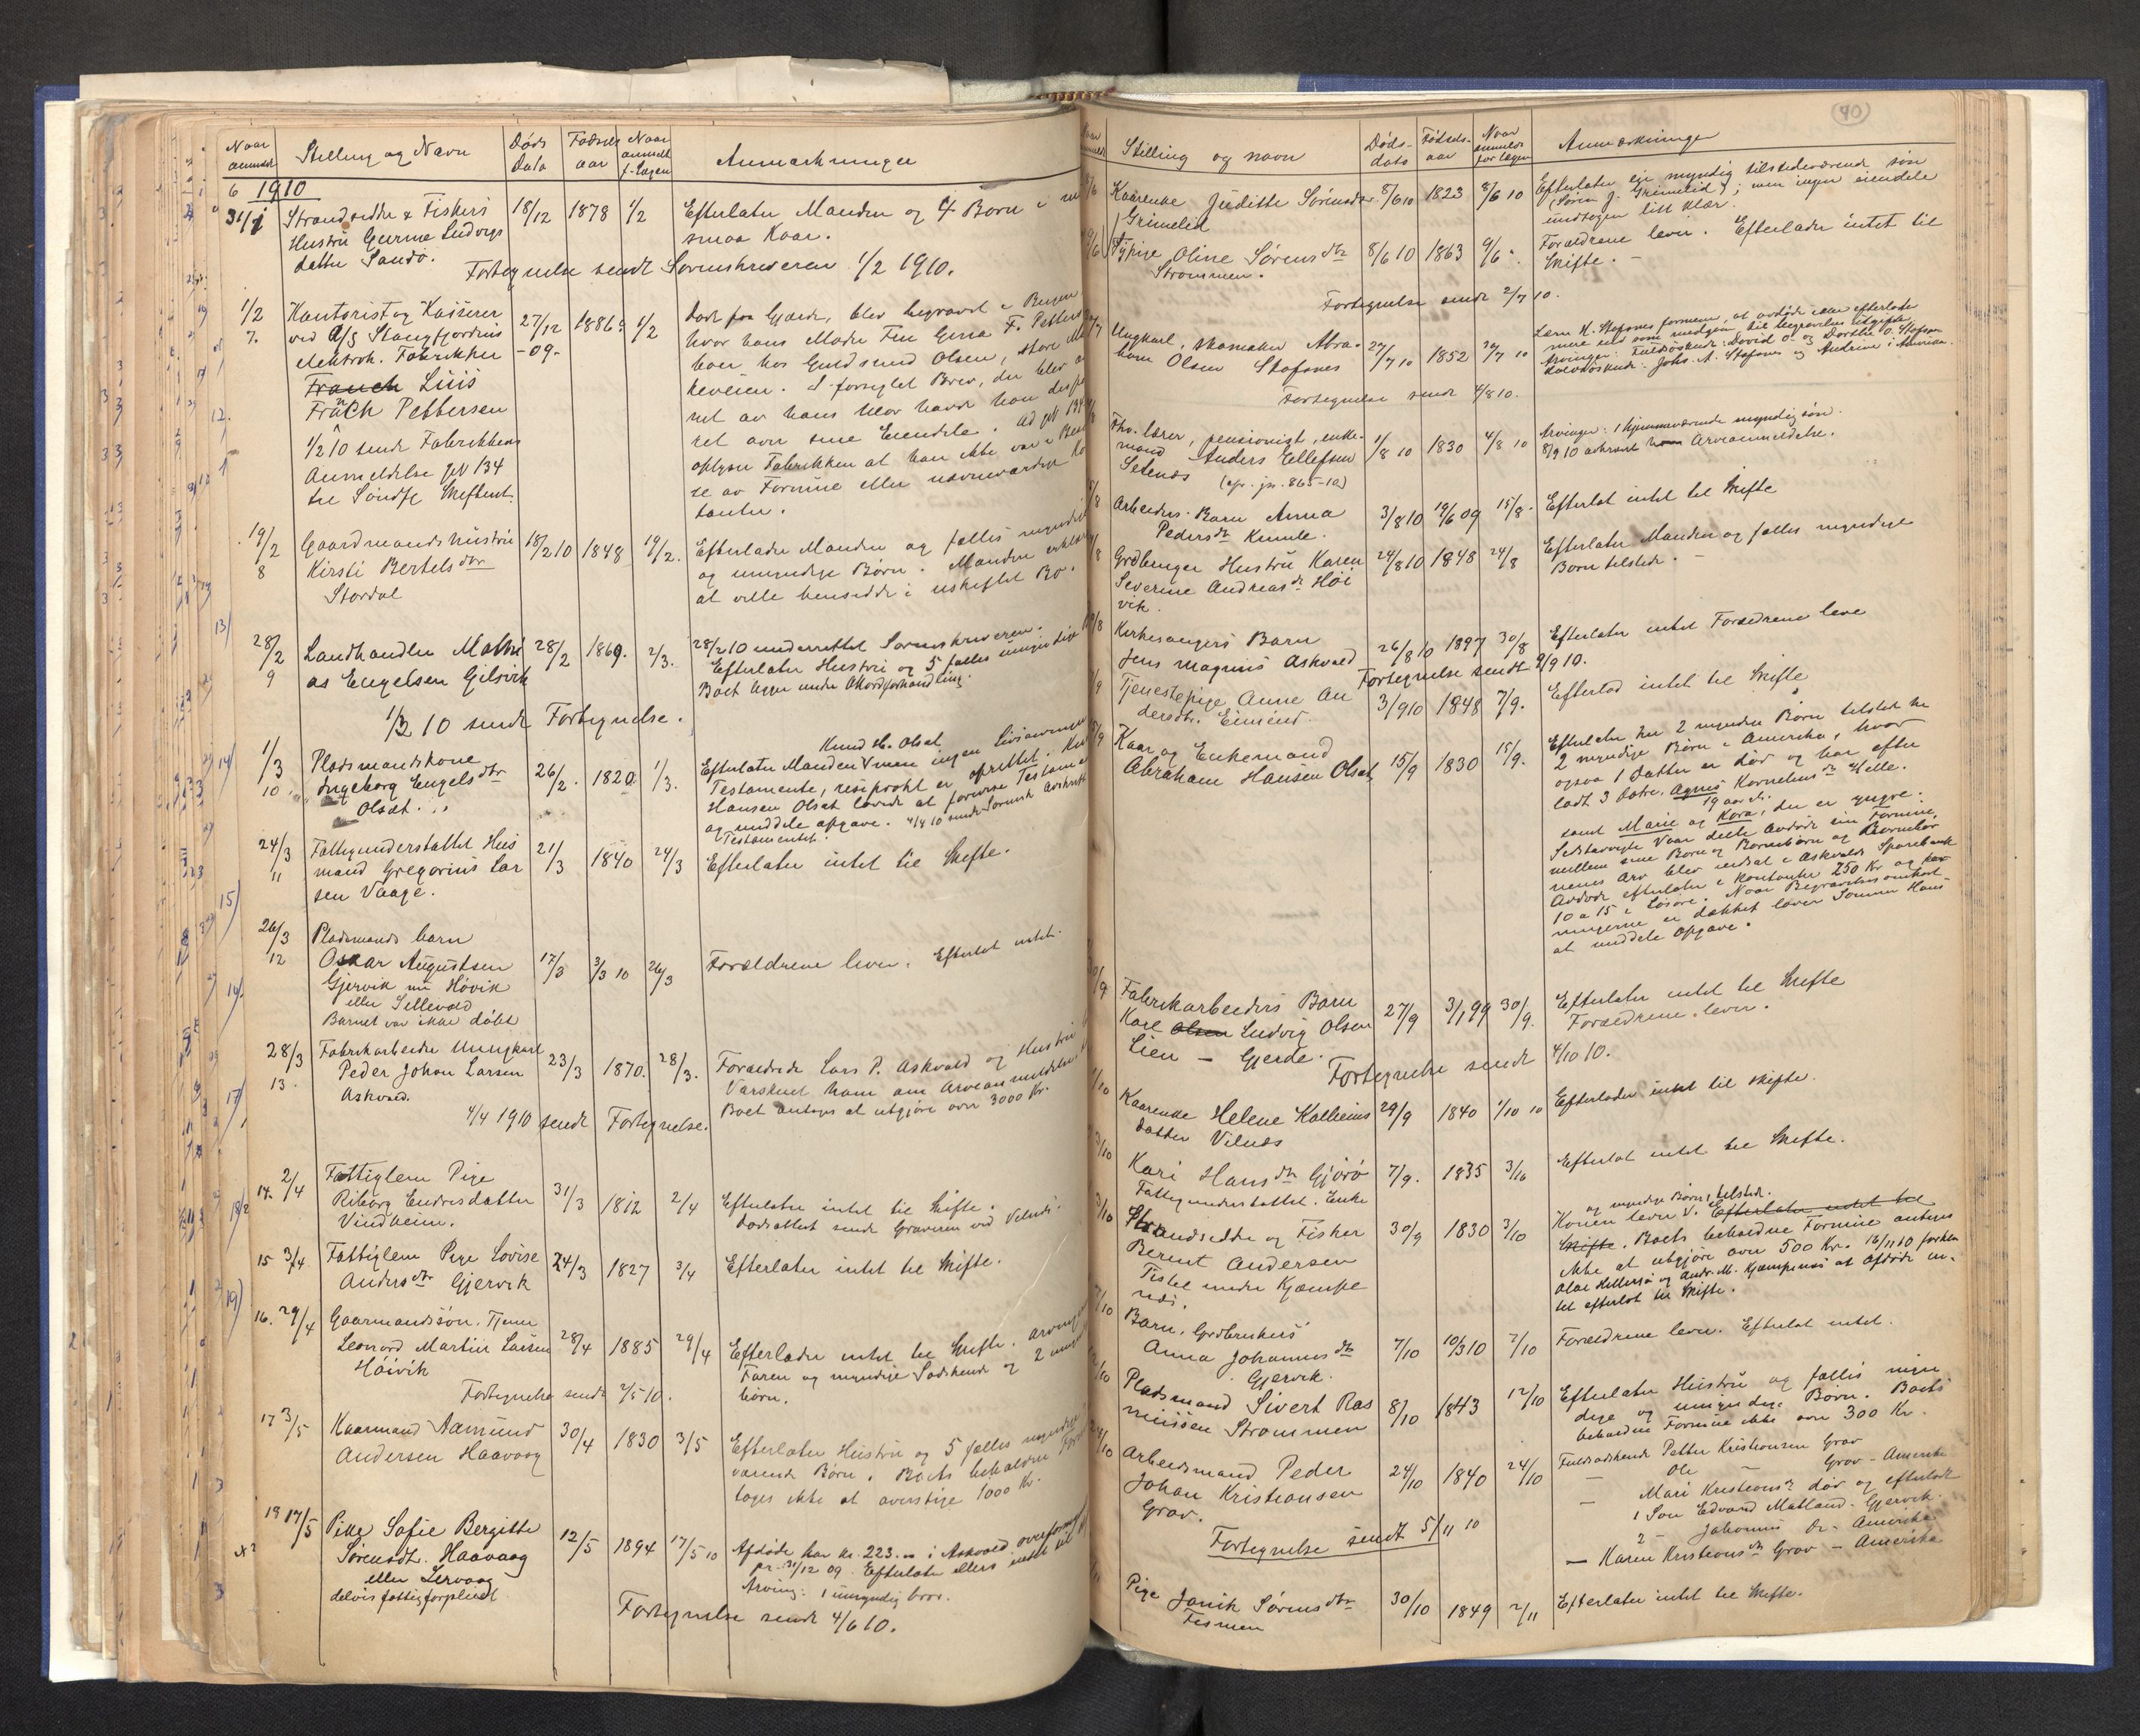 Naar anmeldt
Stilling og Navn
Døds Dato
Fødsels aar
Naar anmeldt f. Lægen
Anmærkninger
6 1910
31/1 Strandsidder & Fiskers 18/12 1878 1/2 Efterlater Manden og 4 Børn i
Hustru Gurine Ludvigs smaa Kaar.
datter Sandø.
Fortegnelse sendt Sorenskriveren 1/2 1910.
1/2 Kontorist og Kasserer 27/12 1886 1/2 Død paa Gjerde, blev begravet i Bergen
7. ved A/S Stangfjordens -09- hvor hans Moder Fru Gina F. Petters
elektrok. Fabrikker boer hos Guldsmed Olsen, store
Franch Luis keveien. I forseglet Brev, der blev
Franch Pettersen net av hans Mor havde han
1/2 10 sendt Fabrikkens ret over sine Eiendele. Ad jNl 134
Anmeldelse jNl 134 oplyser Fabrikken at han ikke var i
til Søndfj Skifteret. se av Formue eller nævneværdige
tanter.
19/2 Gaardmandshustru 18/2 10 1848 19/2. Efterlader Manden og fælles myndige
8 Kirsti Bertelsdtr og umyndige Børn. Manden erklærer
Stordal at ville hensidde i uskiftet Bo.
28/2 Landhandler Mathi 28/2 1869. 2/3. 28/2 10 underrettet Sorenskriveren.
9 as Engelsen Gilsvik Efterlater Hustru og 5 fælles umyndige
Boet ligger under Akkordforhandling.
1/3 10 sendt Fortegnelse.
1/3 Pladsmandskone 26/2. 1820 1/3. Knud H. Olset
10 Ingeborg Engelsdtr Efterlater Manden men ingen Livsarvinger
Olset. Testamente, resiprokt er oprettet. Knud
Hansen Olset lovede at forevise Testam
og meddele opgave. 4/4 10 sendt Sorensk Avskrift
Testamentet.
24/3 Fattigunderstøttet Hus 21/3 1840 24/3 Efterlater intet til Skifte.
11 mand Gregorius Lar
sen Vaage.
26/3 Pladsmands barn
12 Oskar Augustsen 17/3 3/3 10 26/3 Forældrene lever. Efterlot intet.
Gjervik nu Høvik
eller Sellevold
Barnet var ikke døbt
28/3 Fabrikarbeider Ungkarl 23/3 1870. 28/3. Forældrede Lars P. Askvold og Hustru
13. Peder Johan Larsen Varskuet ham om Arveanmeldelse
Askvold. Boet antages at utgjøre over 3000 Kr.
4/4 1910 sendt Fortegnelse.
14. 2/4 Fattiglem Pige 31/3 1812 2/4 Efterlater intet til Skifte.
Riborg Endresdatter Dødsattest sendt Graveren ved Vilnes.
Vindheim.
15 3/4 Fattiglem Pige Lovise 24/3 1827 3/4 Efterlater intet til Skifte.
Andersdtr Gjervik
16. 29/4 Gaarmandssøn. Tjener
Leonard Martin Larsen 28/4 1885 29/4 Efterlader intet til Skifte. arvinger
Høivik Faren og myndige Sødskende og 2
Fortegnelse sendt 2/5 10. børn.
17 3/5 Kaarmand Aamund 30/4 1830 3/5 Efterlater Hustru og 5 fælles myndige
Andersen Haavaag værende Børn. Boets beholdne
tages ikke at overstige 1000 Kr.
18 17/5 Pike Sofie Bergitte 12/5 1894 17/5 10 Afdøde har kr. 223.- i Askvold overform
Sørensdt. Haavaag pr. 31/12 09. Efterlater ellers intet til
eller Lervaag Arving: 1 umyndig bror.
delvis fattigforpleiet
Fortegnelse sendt 4/6 10.
90
Stilling og navn
Døds- dato
Fødsels- aar
Naar anmeldt for lægen
Anmærkninger
Kaarenke Juditte Sørensdtr. 8/6 10 1823 8/6 10 Efterlater eie myndig tilstedeværende søn
Grimelid (Søren J. Grimelid); men ingen eiendele
undtagen litt klær.
Pige Oline Sørensdtr 8/6 10 1863 9/6 Forældrene lever. Efterlader intet til
Strømmen. Skifte.
Fortegnelse sendt 2/7 10.
Ungkarl, skomaker Abra- 27/7 10 1852 30/7 10 Lars K. Stafsnes formener, at avdøde ikke efterlader
ham Olsen Stafsnes mere end som medgaar til begravelses utgifter.
Arvinger: Fuldsøskende: David O. og Dorthe O. Stafsnes
Halvsøskende: Johs. A. Stafsnes og Andrine i Amerika.
Fortegnelse sendt 4/8 10.
Fhv. lærer, pensionist, enke- 1/8 10 1830 4/8 10 Arvinger: 1 hjemmeværende myndig søn.
mand Anders Ellefsen 8/9 10 avkrævet ham Arveanmeldelse.
Selenes (op. jn. 865-10)
Arbeiders Barn Anna 3/8 10 19/6 09 15/8. Efterlot intet til Skifte
Pedersdtr Kumle.
Grdbruger Hustru Karen 24/8 10 1848 24/8 Efterlater Manden og fælles myndige
Severine Andreasdtr Høi Børn tilstede.
vik.
Kirkesangers Barn 26/8 10 1897 30/8 Efterlater intet Forældrene leve
Jens Magnus Askvold Fortegnelse sendt 2/9 10.
Tjenestepige Anne An 3/9 10 1848 7/9. Efterlod intet til Skifte
dersdtr. Eimind.
Kaar og Enkemand 15/9 1830 15/9. Efterlater her 2 myndige Børn tilstede
Abraham Hansen Olset 2 myndige Børn i Amerika, hvor
ogsaa 1 Datter er død og har efter
ladt 3 døtre, Agnes Kornelius dtr Helle.
19 aar
samt Marie og Kora, der er yngre.
Sidstavvigte Vaar delte Avdøde sin Formue,
mellem sine Børn og Børnebørn og Børnebør
nenes Arv blev indsat i Askvolds Sparebank
Avdøde efterlater i kontanter 250 Kr og par
10 a 15 i Løsøre. Naar Begravelsesomkost-
ningerne er dækket lover Sønnen Hans
at meddele Opgave.
Fabrikarbeiders Barn 27/9 3/1 99 30/9. Efterlater intet til Skifte
Karl Olsen Ludvig Olsen Forældrene lever.
Lien - Gjerde.
Fortegnelse sendt 4/10 10.
Kaarenke Helene Kolbeins 29/9 1840 1/10 10 Efterlader intet til skifte.
datter Vilnes
Kari Hansdtr Gjørø 7/9. 1835 3/10 Efterlot intet til Skifte.
Fattigunderstøttet. Enke
Strandsidder og Fisker 30/9 1830 3/10 og myndige Børn, tilstede.
Berent Andersen Konen lever v. Efterlater intet til
Tistel under Kjempe Skifte. Boets beholdne Formue antages
nes. ikke at utgjøre over 500 Kr. 16/11 10 forkla
Olai Hellersø og Andr. M. Kjempenes at Afdøde in-
tet efterlot til Skifte.
Barn, Grdbrukers
Anna Johannesdtr 7/10 10/3 10 7/10 Forældrene lever. Efterlot intet.
Gjervik.
Pladsmand Sivert Ras 8/10 1843 12/10 Efterlater Hustru og fælles myn
mussen Strømmen dige og umyndige Børn. Boets
beholdne Formue ikke over 300 Kr.
Arbeidsmand Peder 24/10 1840 24/10 Fuldsødskende Petter Kristiansen Grov
Johan Kristiansen - Ole - Grov - Amerika
Grov. - Mari Kristiansdtr død og efterladt
1 Søn Edvard Matland. Gjervik.
2 - Johannes Do - Amerika
- Karen Kristiansdtr Grov - Amerika
Fortegnelse sendt 5/11 10
Pige Janik Sørensdtr 30/10 1849 2/11 Efterlater intet til Skifte.
Tismen